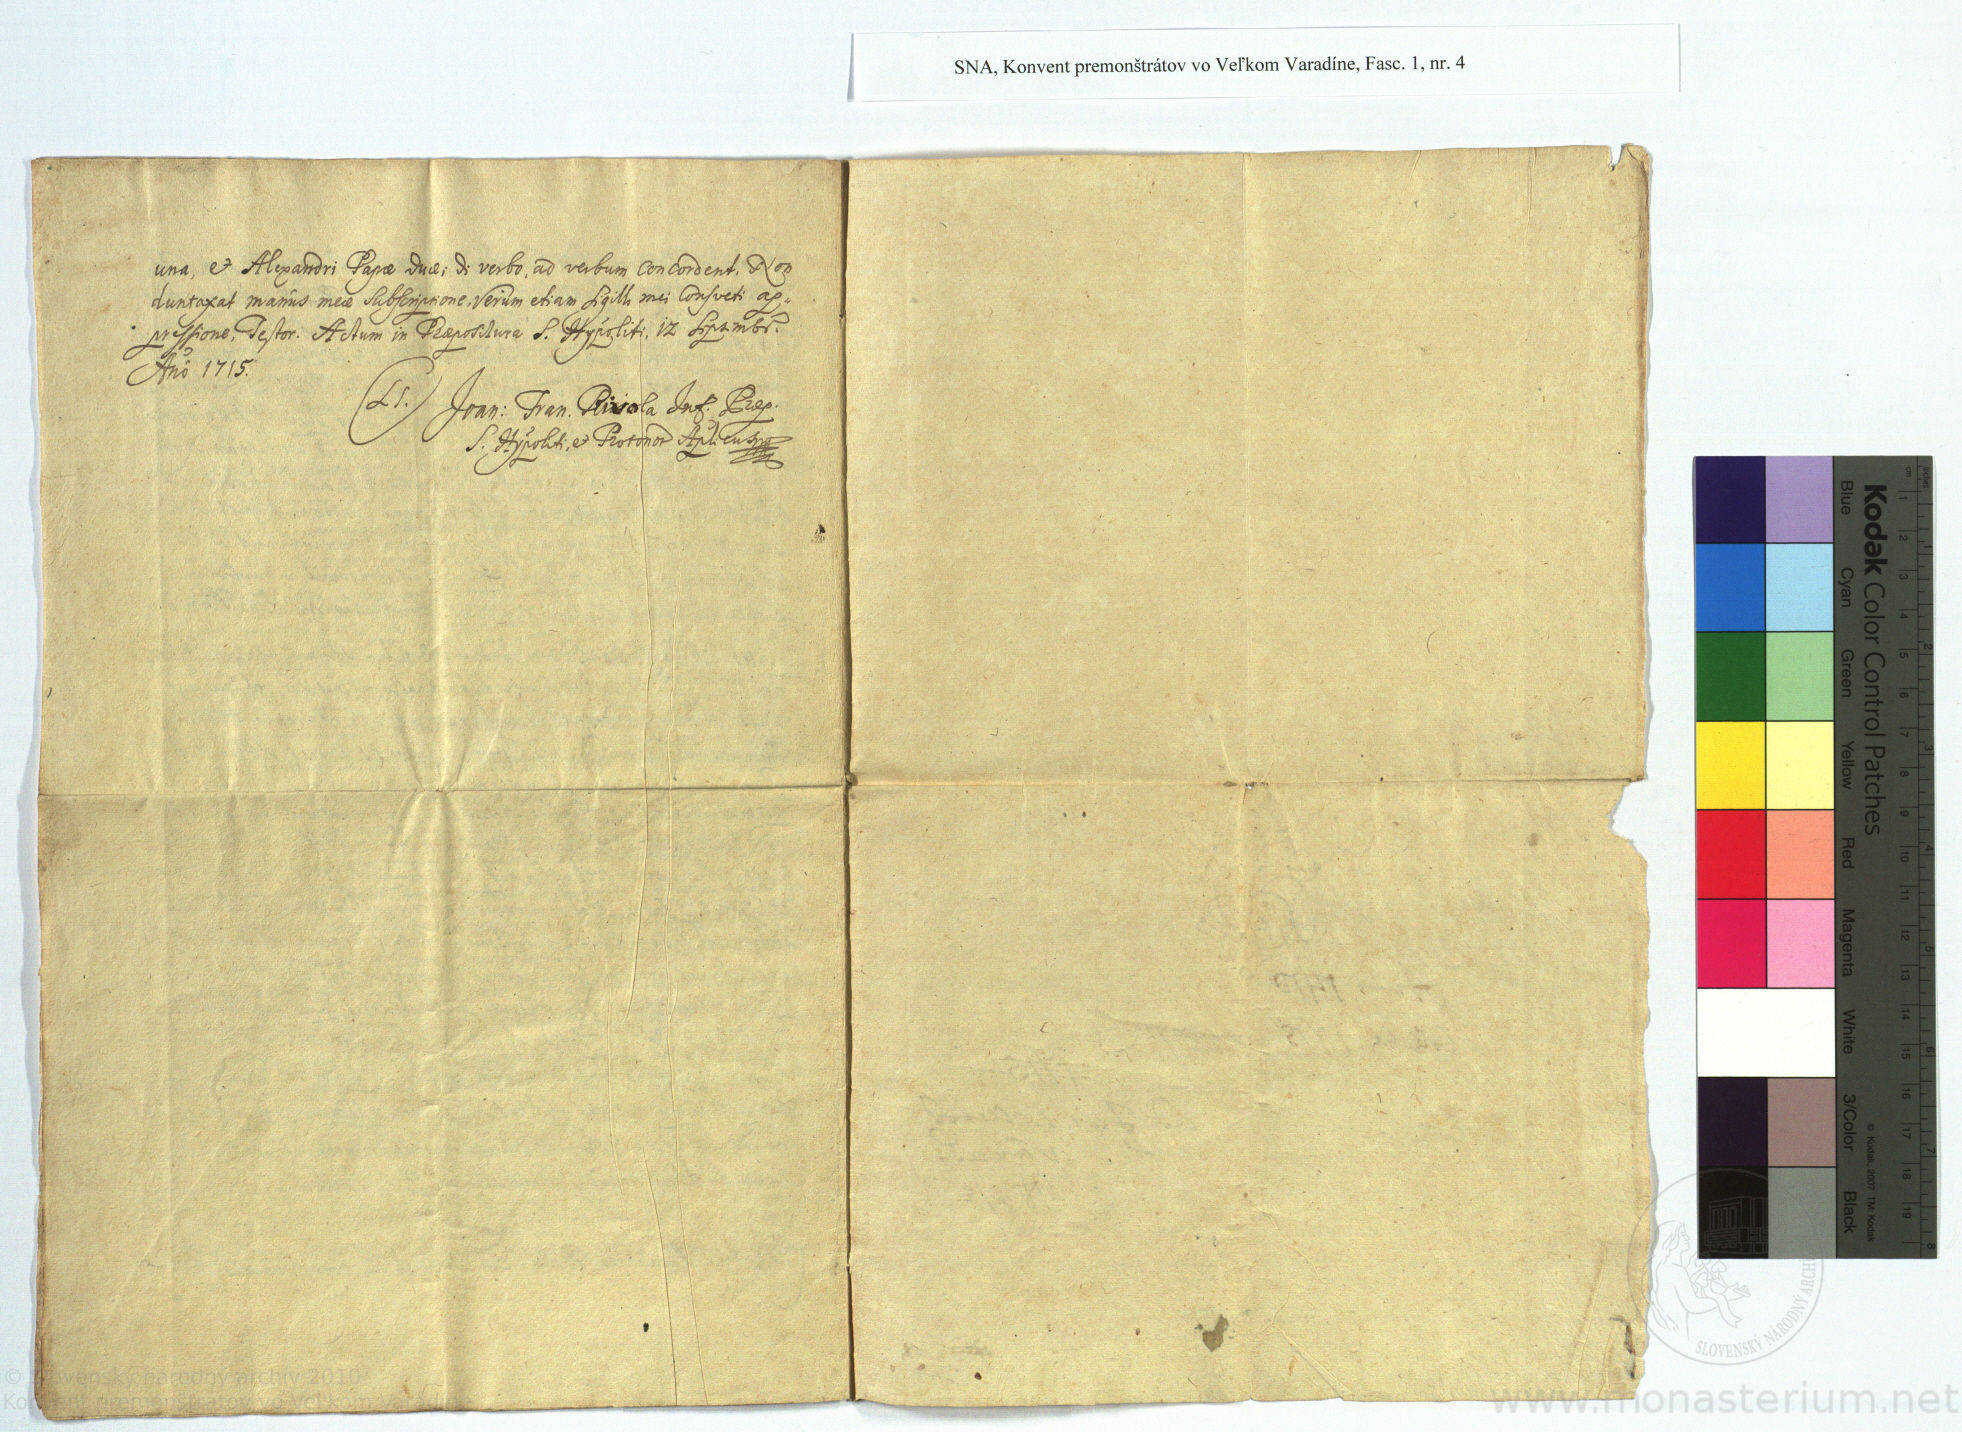 SNA, Konvent premonštrátov vo Veľkom Varadíne, Fasc. 1, nr. 4
una, et Alexandri Papæ duæ, de verbo, ad verbum concordent. Non
duntaxat manûs meæ subscriptione, verùm etiam sigilli mei consveti ap-
pressione, Testor. Actum in Præpositura S. Hÿpoliti, 12 Septembr.
Año 1715.
(LS.) Joan: Fran. Rivola Inf. Præp.
S. Hÿpoliti, et Protonot Aplicus
Kodak Color Control Patches
Blue Cyan Green Yellow Red Magenta White 3/Color Black
© Kodak, 2007 TM: Kodak
cm 1 2 3 4 5 6 7 8 9 10 11 12 13 14 15 16 17 18 19
inches 1 2 3 4 5 6 7 8
SLOVENSKÝ NÁRODNÝ ARCHÍV
© Slovenský národný archív 2010
Konvent premonštrátov vo Veľkom Varadíne
www.monasterium.net